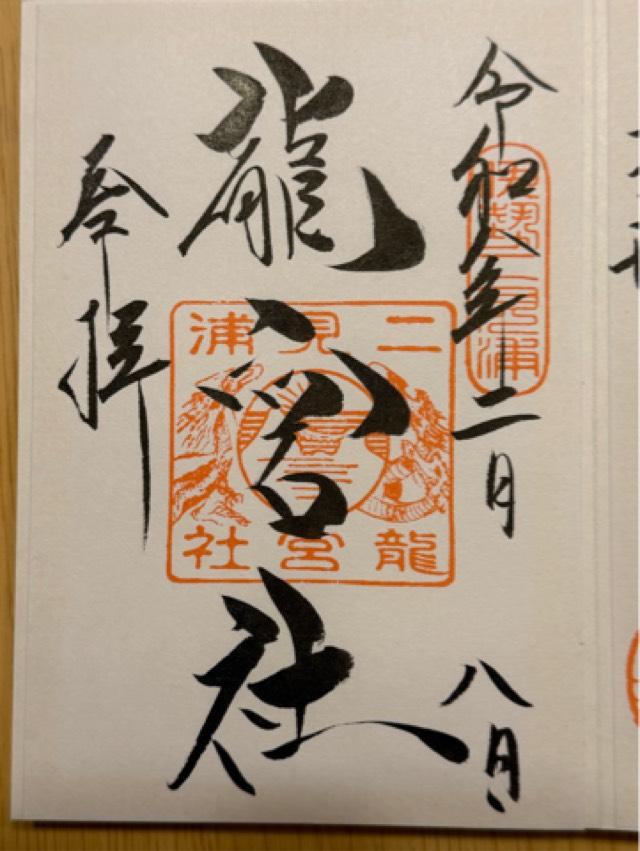 令和八年二月八日
伊勢二見浦
龍宮社
二見浦
龍宮社
奉拝